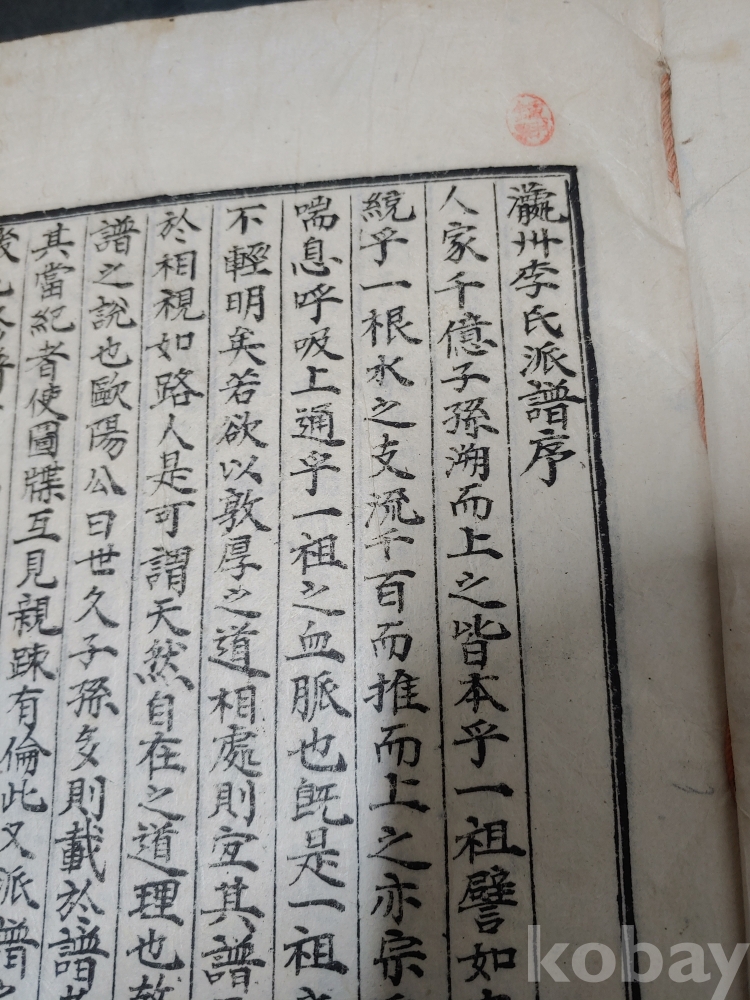 瀛州李氏派譜序
人家千億子孫溯而上之皆本乎一祖譬如
統乎一根水之支流千百而推而上之亦宗
喘息呼吸上通乎一祖之血脈也旣是一祖
不輕明矣若欲以敦厚之道相處則宜其譜
於相視如路人是可謂天然自在之道理也故
譜之說也歐陽公曰世久子孫多則載於譜
其當紀者使圖牒互見親踈有倫此又派譜之
kobay